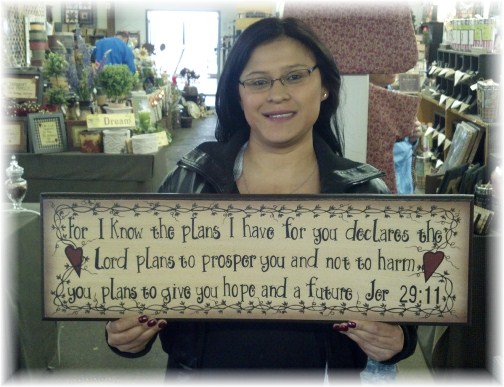 Dream
For I know the plans I have for you declares the
Lord plans to prosper you and not to harm
you, plans to give you hope and a future Jer 29:11